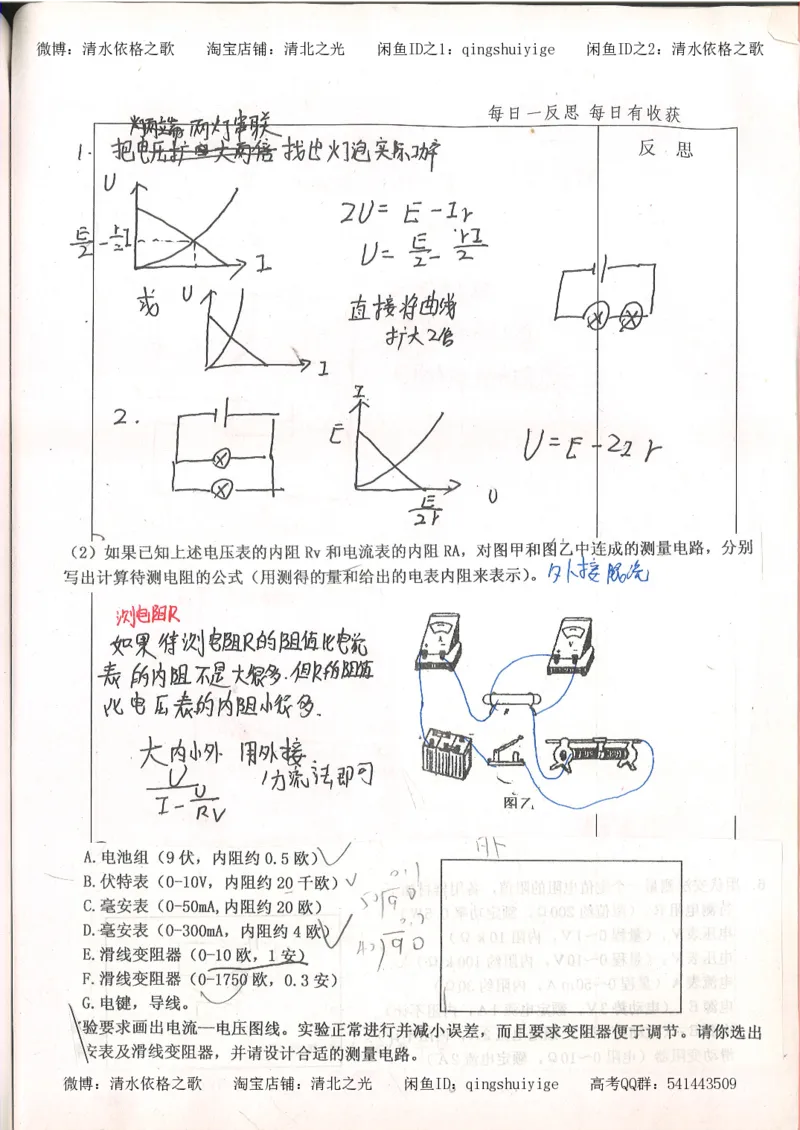 微博：清水依格之歌 淘宝店铺：清北之光 闲鱼ID之1：qingshuiyige 闲鱼ID之2：清水依格之歌
每日一反思 每日有收获
反 思
两灯串联
1. 把电压 找出灯泡实际功率
U
E/2 - r/2 I
I
2U = E - Ir
U = E/2 - rI/2
或 U
I
直接将曲线
扩大2倍
2.
I
E
U
E/2r
U = E - 2Ir
（2）如果已知上述电压表的内阻 Rv 和电流表的内阻 RA，对图甲和图乙中连成的测量电路，分别
写出计算待测电阻的公式（用测得的量和给出的电表内阻来表示）。 外接限流
测电阻R
如果待测电阻R的阻值比电流
表的内阻不是大很多，但R的阻值
比电压表的内阻小很多．
大内小外 用外接
分流法即可
U
I - U/RV
A
V
R
图乙
A.电池组（9 伏，内阻约 0.5 欧）
B.伏特表（0-10V，内阻约 20 千欧）
C.毫安表（0-50mA,内阻约 20 欧）
D.毫安表（0-300mA，内阻约 4 欧）
E.滑线变阻器（0-10 欧，1 安）
F.滑线变阻器（0-1750 欧，0.3 安）
G.电键，导线。
验要求画出电流—电压图线。实验正常进行并减小误差，而且要求变阻器便于调节。请你选出
安表及滑线变阻器，并请设计合适的测量电路。
微博：清水依格之歌 淘宝店铺：清北之光 闲鱼ID；qingshuiyige 高考QQ群：541443509